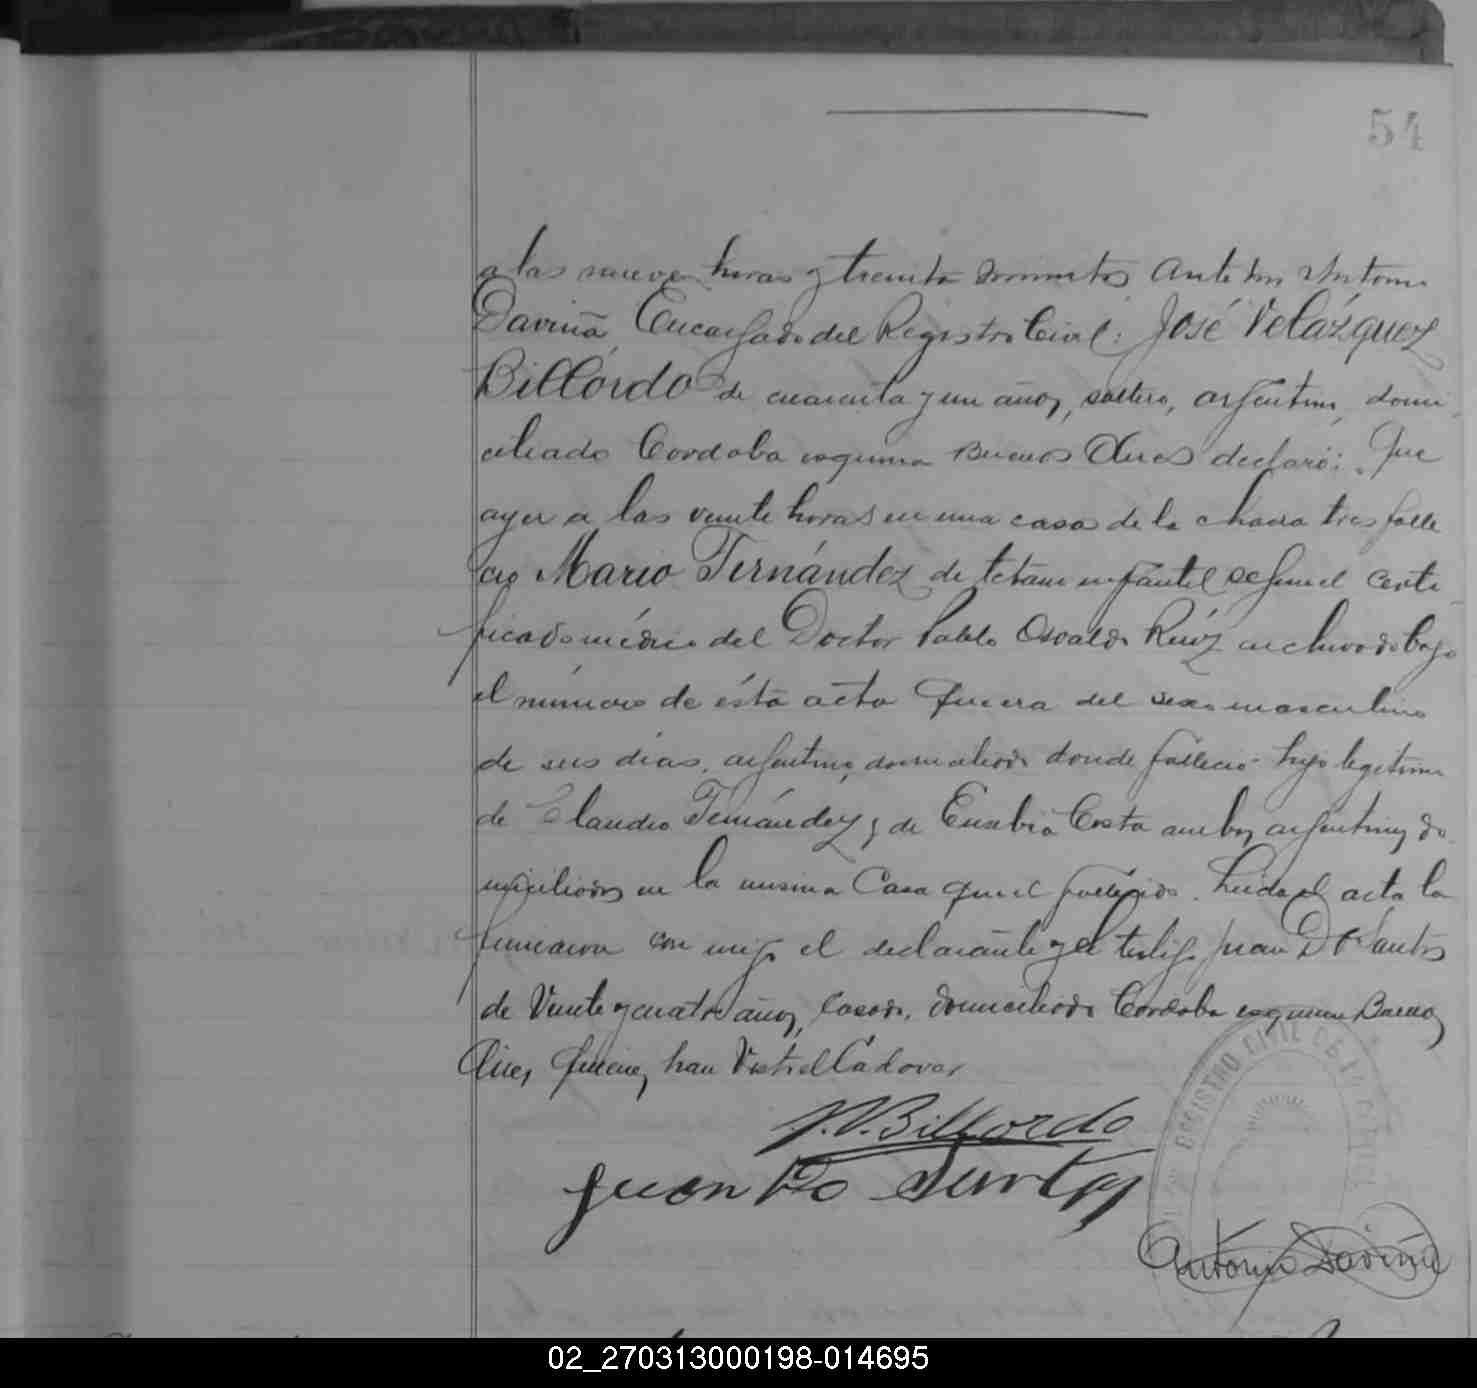 54
a las nueve horas y treinta minutos ante mi Antonio
Daviña Encargado del Registro Civil: José Velázquez
Billórdo de cuarenta y un años, soltero, argentino, domi-
ciliado Cordoba esquina Buenos Aires declaró: Que
ayer a las veinte horas en una casa de la chacra tres falle
cio Mario Fernández de tétano infantil segun el certi-
ficado médico del Doctor Pablo Osvaldo Ruíz archivado bajo
el número de ésta acta que era del sexo masculino
de seis dias, argentino, domiciliado donde fallecio hijo legitimo
de Claudio Fernández y de Eusebia Costa ambos argentinos do
miciliados en la misma Casa que el fallecido. Leida el acta la
firmaron con migo el declarante y el testigo Juan Do Santos
de Veinte y cuatro años, Casado, domiciliado Cordoba esquina Buenos
Aires, quienes han Visto el Cadaver,
J.V. Billordo
Juan Do Santos
REGISTRO CIVIL DE
Antonio Daviña
02_270313000198-014695